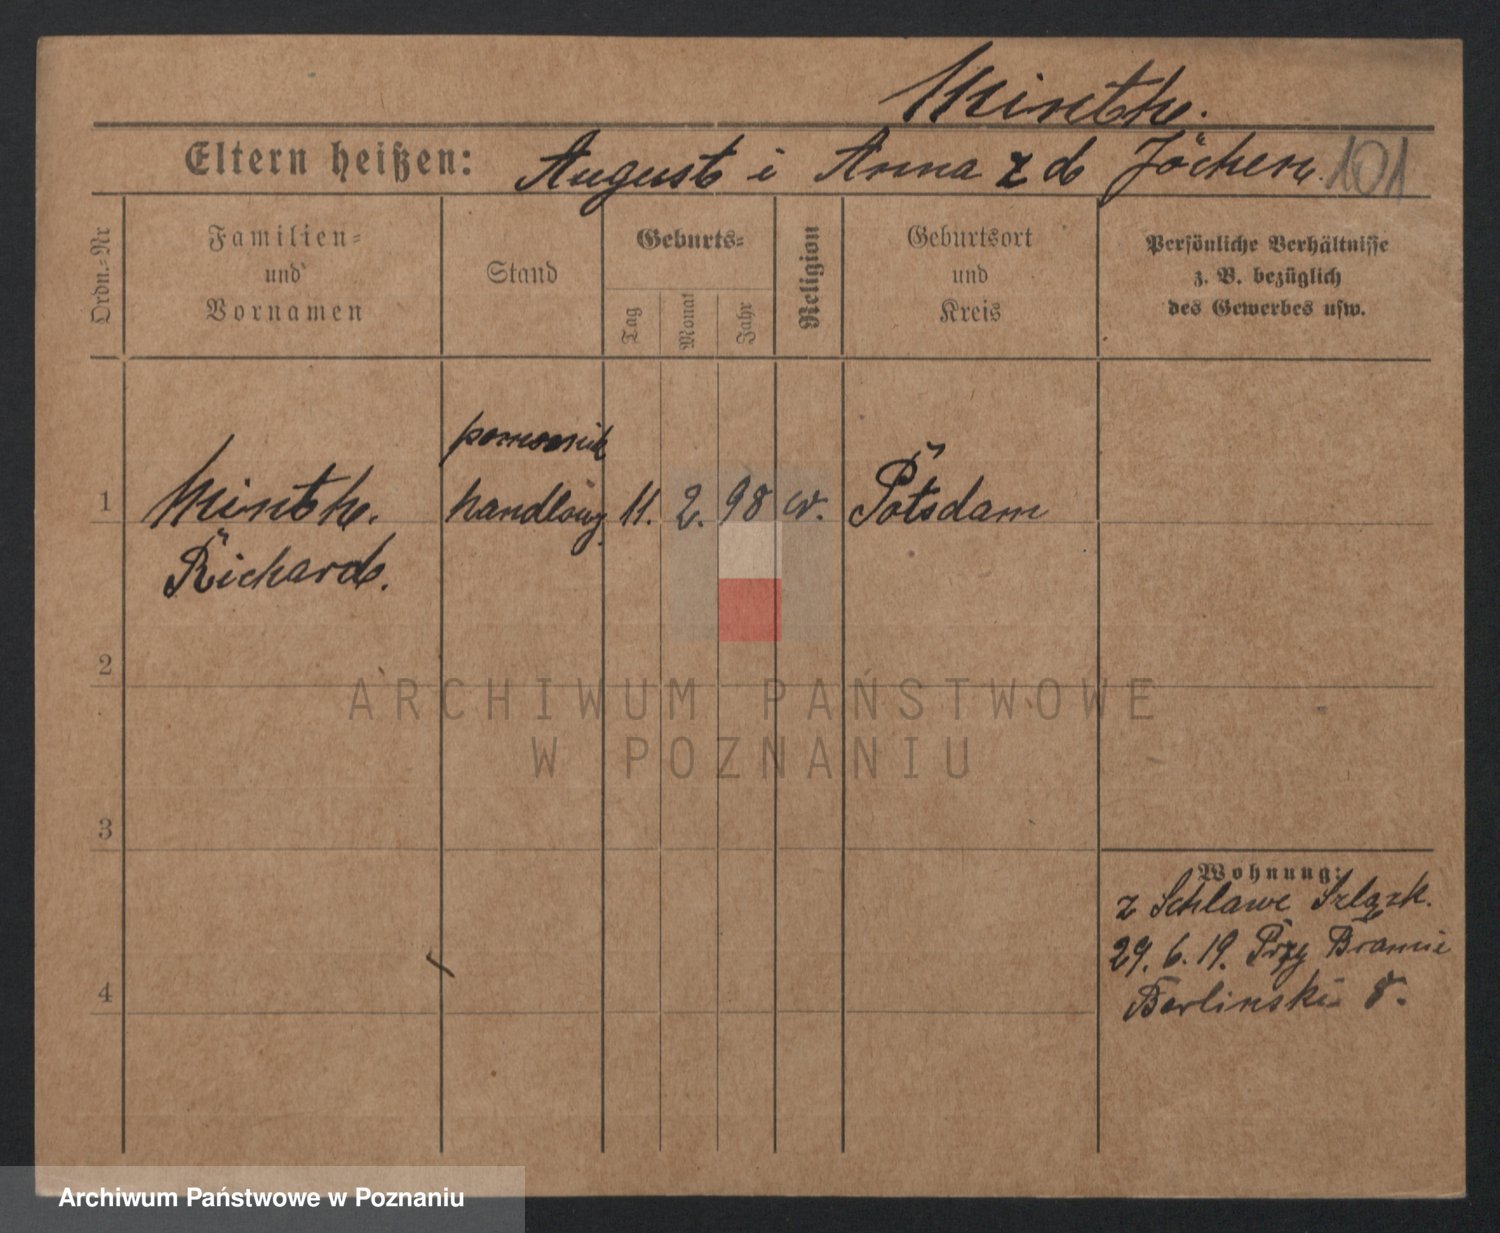 Minthe.
Eltern heißen: August i Anna z d Jöchen. 101
Ordn.-Nr
Familien-
und
Vornamen
Stand
Geburts-
Tag
Monat
Jahr
Religion
Geburtsort
und
Kreis
Persönliche Verhältnisse
z. B. bezüglich
des Gewerbes usw.
pomocnik
1 Minthe. handlowy. 11. 2. 98 ew. Potsdam
Richard.
2
ARCHIWUM PAŃSTWOWE
W POZNANIU
3
Wohnung:
z Schlawe Szląsk.
29. 6. 19. Przy Bramie
4 Berlinski 8.
Archiwum Państwowe w Poznaniu